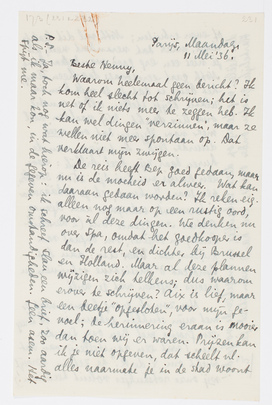 Parijs, Maandag
11 Mei '36.
Beste Henny,
Waarom heelemaal geen bericht? Ik
kom heel slecht tot schrijven; het is
net of ik niets meer te zeggen heb. Ik
kan wel dingen "verzinnen", maar ze
wellen niet meer spontaan op. Dat
verklaart mijn zwijgen.
De reis heeft Bep goed gedaan, maar
nu is de moeheid er alweer. Wat kan
daaraan gedaan worden? Ik reken eig.
alleen nog maar op een rustig oord,
voor al deze dingen. We denken nu
over Spa, omdat het goedkooper is
dan de rest, en dichter bij Brussel
en Holland. Maar al deze plannen
wijzigen zich telkens; dus waarom
erover te schrijven? Aix is lief, maar
een beetje "opgesloten", voor mijn ge-
voel; de herinnering eraan is mooier
dan toen wij er waren. Prijzen kan
ik je niet opgeven, dat scheelt v.
alles naarmate je in de stad woont
P.S. Tóch nog wat hierop: ik schreef
als ik maar kon, in de gegeven omstandigheden geen
Spijt me.